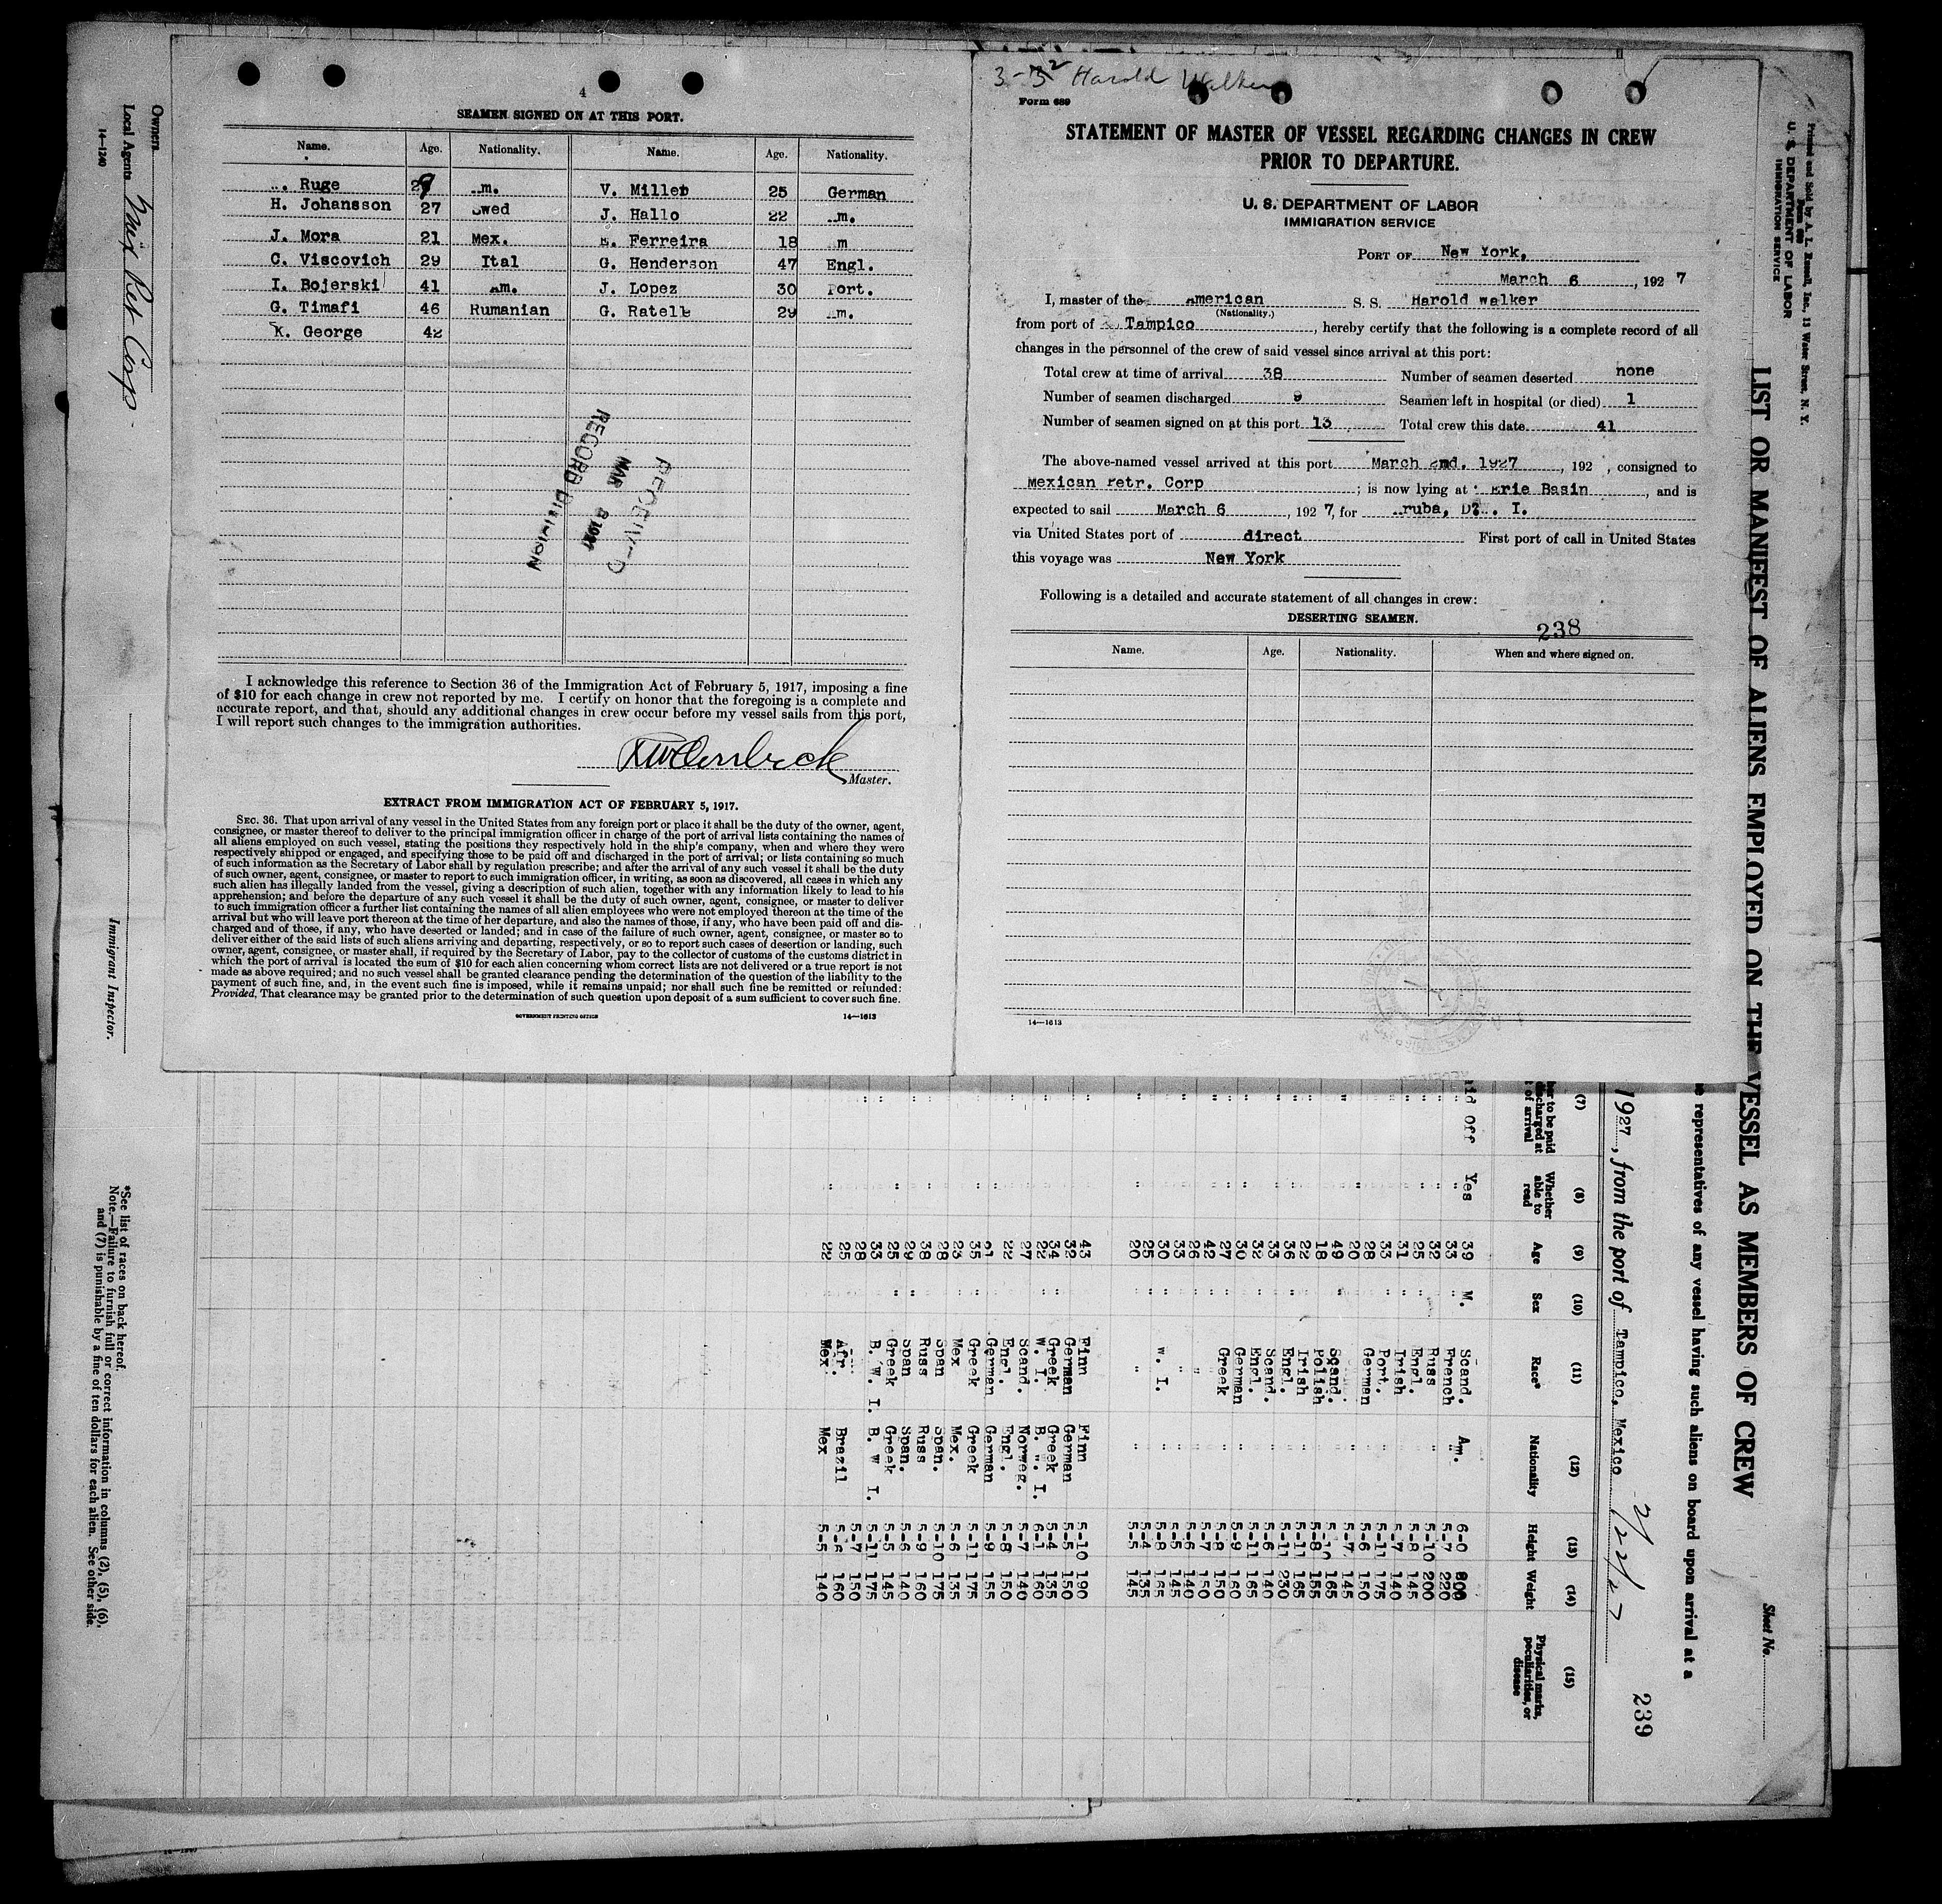 4
SEAMEN SIGNED ON AT THIS PORT.
Name. Age. Nationality. Name. Age. Nationality.
Ruge 29 m. V. Miller 25 German
H. Johansson 27 Swed J. Hallo 22 m.
J. Mora 21 Mex. Ferreira 18 m
C. Viscovich 29 Ital G. Henderson 47 Engl.
I. Bojerski 41 Am. J. Lopez 30 Port.
G. Timafi 46 Rumanian G. Ratell 29 m.
K. George 42
RECEIVED
MAR 8 1927
RECORD DIVISION
I acknowledge this reference to Section 36 of the Immigration Act of February 5, 1917, imposing a fine
of $10 for each change in crew not reported by me. I certify on honor that the foregoing is a complete and
accurate report, and that, should any additional changes in crew occur before my vessel sails from this port,
I will report such changes to the immigration authorities.
Master.
EXTRACT FROM IMMIGRATION ACT OF FEBRUARY 5, 1917.
SEC. 36. That upon arrival of any vessel in the United States from any foreign port or place it shall be the duty of the owner, agent,
consignee, or master thereof to deliver to the principal immigration officer in charge of the port of arrival lists containing the names of
all aliens employed on such vessel, stating the positions they respectively hold in the ship's company, when and where they were
respectively shipped or engaged, and specifying those to be paid off and discharged in the port of arrival; or lists containing so much
of such information as the Secretary of Labor shall by regulation prescribe; and after the arrival of any such vessel it shall be the duty
of such owner, agent, consignee, or master to report to such immigration officer, in writing, as soon as discovered, all cases in which any
such alien has illegally landed from the vessel, giving a description of such alien, together with any information likely to lead to his
apprehension; and before the departure of any such vessel it shall be the duty of such owner, agent, consignee, or master to deliver
to such immigration officer a further list containing the names of all alien employees who were not employed thereon at the time of the
arrival but who will leave port thereon at the time of her departure, and also the names of those, if any, who have been paid off and dis-
charged and of those, if any, who have deserted or landed; and in case of the failure of such owner, agent, consignee, or master so to
deliver either of the said lists of such aliens arriving and departing, respectively, or so to report such cases of desertion or landing, such
owner, agent, consignee, or master shall, if required by the Secretary of Labor, pay to the collector of customs of the customs district in
which the port of arrival is located the sum of $10 for each alien concerning whom correct lists are not delivered or a true report is not
made as above required; and no such vessel shall be granted clearance pending the determination of the question of the liability to the
payment of such fine, and, in the event such fine is imposed, while it remains unpaid; nor shall such fine be remitted or refunded:
Provided, That clearance may be granted prior to the determination of such question upon deposit of a sum sufficient to cover such fine.
GOVERNMENT PRINTING OFFICE 14—1613
3-3 2 Harold Walker
Form 689
STATEMENT OF MASTER OF VESSEL REGARDING CHANGES IN CREW
PRIOR TO DEPARTURE.
U. S. DEPARTMENT OF LABOR
IMMIGRATION SERVICE
PORT OF New York,
March 6, 1927
I, master of the American S. S. Harold walker
(Nationality.)
from port of Tampico, hereby certify that the following is a complete record of all
changes in the personnel of the crew of said vessel since arrival at this port:
Total crew at time of arrival 38 Number of seamen deserted none
Number of seamen discharged 9 Seamen left in hospital (or died) 1
Number of seamen signed on at this port 13 Total crew this date 41
The above-named vessel arrived at this port March 2nd. 1927, 192 , consigned to
Mexican Petr. Corp ; is now lying at Erie Basin, and is
expected to sail March 6, 1927, for ruba, D. . I.
via United States port of direct First port of call in United States
this voyage was New York
Following is a detailed and accurate statement of all changes in crew:
DESERTING SEAMEN.
238
Name. Age. Nationality. When and where signed on.
14—1613
Printed and Sold by A. L. Russell, Inc., 13 Water Street, N. Y.
Form 680
U. S. DEPARTMENT OF LABOR
IMMIGRATION SERVICE
LIST OR MANIFEST OF ALIENS EMPLOYED ON THE VESSEL AS MEMBERS OF CREW
Sheet No.
representatives of any vessel having such aliens on board upon arrival at a
1927, from the port of Tampico, Mexico 2/22/27
239
(7) (8) (9) (10) (11) (12) (13) (14) (15)
her to be paid
discharged at
of arrival
Whether able to read
Age
Sex
Race*
Nationality
Height
Weight
Physical marks, peculiarities, or disease
id Off Yes 39 M. Scand. Am. 6-0 200
" " 33 " French " 5-7 220
" 32 Russ 5-10 200
25 Engl. 5-8 145
31 Irish 5-7 140
33 Port. 5-11 175
28 German 5-6 150
20 5-7 145
49 Scand. 5-10 165
18 Polish 5-8 155
22 Irish 5-11 165
36 Engl. 5-11 230
33 Scand. 5-6 140
32 Engl. 5-11 165
30 German 5-9 160
27 Greek 5-8 150
42 " 5-7 150
26 " 5-6 140
33 " 5-5 145
30 W. I. 5-8 165
25 " 5-4 135
20 " 5-5 145
43 Finn Finn 5-10 190
32 German German 5-5 150
34 Greek Greek 5-4 135
22 W. I. B. W. I. 6-1 160
27 Scand. Norweg. 5-7 140
22 Engl. Engl. 5-8 150
21 German German 5-9 155
35 Greek Greek 5-11 175
23 Mex Mex. 5-6 135
28 Span Span. 5-10 175
38 Russ Russ 5-9 160
29 Span Span. 5-6 140
25 Greek Greek 5-5 145
33 B. W. I. B. W I. 5-11 175
28 5-7 150
25 Afr. Brazil 5-6 160
22 Mex Mex 5-5 140
*See list of races on back hereof.
Note.—Failure to furnish full or correct information in columns (2), (5), (6),
and (7) is punishable by a fine of ten dollars for each alien. See other side.
Owners
Local Agents Mex Pet Corp
14—1240
Immigrant Inspector.